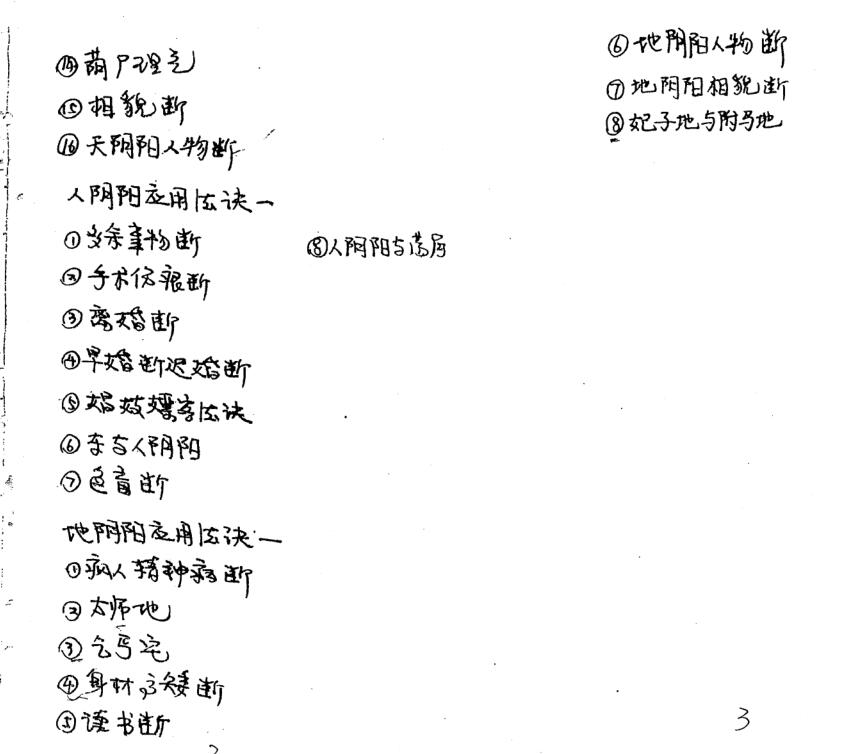 ⑭葫芦理气
⑮相貌断
⑯天阴阳人物断
人阴阳应用法诀一
①多余事物断
②手术伤痕断
③离婚断
④早婚断迟婚断
⑤娼妓嫖客法诀
⑥车与人阴阳
⑦色盲断
⑧人阴阳与房
地阴阳应用法诀一
①病人精神病断
②太师地
③乞丐宅
④身材高矮断
⑤读书断
⑥地阴阳人物断
⑦地阴阳相貌断
⑧妃子地与附马地
3